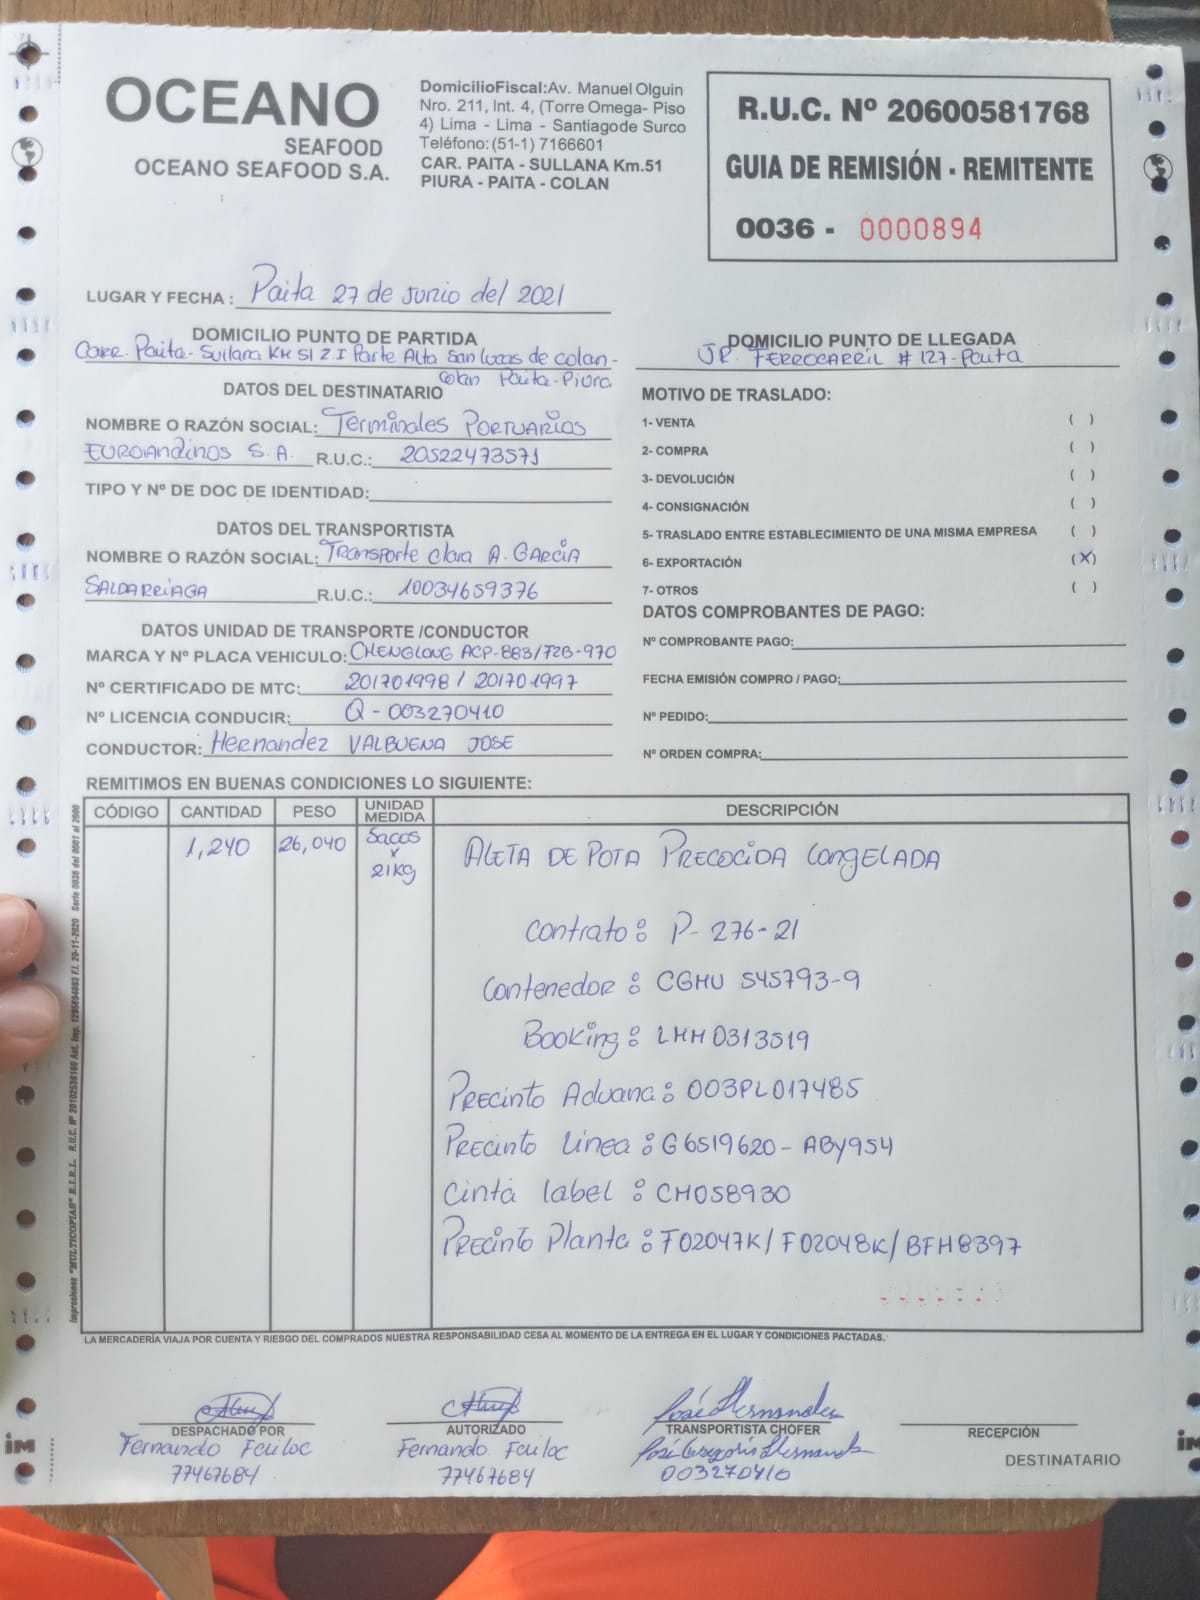 OCEANO
SEAFOOD
OCEANO SEAFOOD S.A.
DomicilioFiscal:Av. Manuel Olguin
Nro. 211, Int. 4, (Torre Omega- Piso
4) Lima - Lima - Santiagode Surco
Teléfono:(51-1) 7166601
CAR. PAITA - SULLANA Km.51
PIURA - PAITA - COLAN
R.U.C. Nº 20600581768
GUIA DE REMISIÓN - REMITENTE
0036 - 0000894
LUGAR Y FECHA : Paita 27 de Junio del 2021
DOMICILIO PUNTO DE PARTIDA
Carr. Paita- Sullana KM 51 Z I Parte Alta San Lucas de Colan-
Colan Paita-Piura
DOMICILIO PUNTO DE LLEGADA
JR. FERROCARRIL # 127-Paita
DATOS DEL DESTINATARIO
NOMBRE O RAZÓN SOCIAL: Terminales Portuarios
Euroandinos S.A. R.U.C.: 20522473571
TIPO Y Nº DE DOC DE IDENTIDAD:
DATOS DEL TRANSPORTISTA
NOMBRE O RAZÓN SOCIAL: Transporte Clara A. GARCIA
SALDARRIAGA R.U.C.: 10034659376
DATOS UNIDAD DE TRANSPORTE /CONDUCTOR
MARCA Y Nº PLACA VEHICULO: CHENGLONG ACP-883/F2B-970
Nº CERTIFICADO DE MTC: 201701998 / 201701997
Nº LICENCIA CONDUCIR: Q-003270410
CONDUCTOR: Hernandez VALBUENA JOSE
MOTIVO DE TRASLADO:
1- VENTA ( )
2- COMPRA ( )
3- DEVOLUCIÓN ( )
4- CONSIGNACIÓN ( )
5- TRASLADO ENTRE ESTABLECIMIENTO DE UNA MISMA EMPRESA ( )
6- EXPORTACIÓN (X)
7- OTROS ( )
DATOS COMPROBANTES DE PAGO:
Nº COMPROBANTE PAGO:
FECHA EMISIÓN COMPRO / PAGO:
Nº PEDIDO:
Nº ORDEN COMPRA:
REMITIMOS EN BUENAS CONDICIONES LO SIGUIENTE:
CÓDIGO CANTIDAD PESO UNIDAD MEDIDA DESCRIPCIÓN
1,240 26,040 Sacos x 21Kg ALETA DE POTA PRECOCIDA CONGELADA
Contrato: P-276-21
Contenedor: CGMU 545793-9
Booking: LHH0313519
Precinto Aduana: 003PL017485
Precinto Linea: G6519620-ABY954
Cinta label: CH058930
Precinto Planta: F02047K/F02048K/BFH8397
LA MERCADERÍA VIAJA POR CUENTA Y RIESGO DEL COMPRADOS NUESTRA RESPONSABILIDAD CESA AL MOMENTO DE LA ENTREGA EN EL LUGAR Y CONDICIONES PACTADAS.
Impresiones "MULTICOPIAS" E.I.R.L. R.U.C. Nº 20102536160 Aut. Imp. 1295894083 F.I. 20-11-2020 Serie 0036 del 0001 al 2000
DESPACHADO POR
Fernando
77467684
AUTORIZADO
Fernando
77467684
José Hernandez
TRANSPORTISTA CHOFER
José Gregorio Hernandez
003270410
RECEPCIÓN
DESTINATARIO
im
im